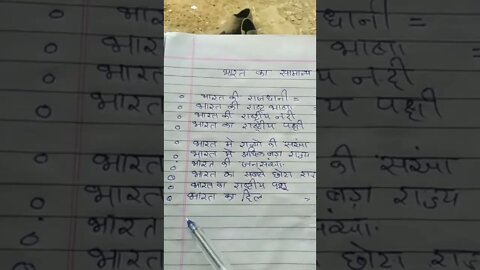 भारत का सामान्य
भारत की राजधानी =
भारत की राष्ट्र भाषा =
भारत की राष्ट्रीय नदी
भारत का राष्ट्रीय पक्षी
भारत मे राज्यो की संख्या
भारत मे राज्य
भारत की जनसंख्या
भारत का सबसे छोटा राज्य
भारत का राष्ट्रीय पशु
भारत का दिल